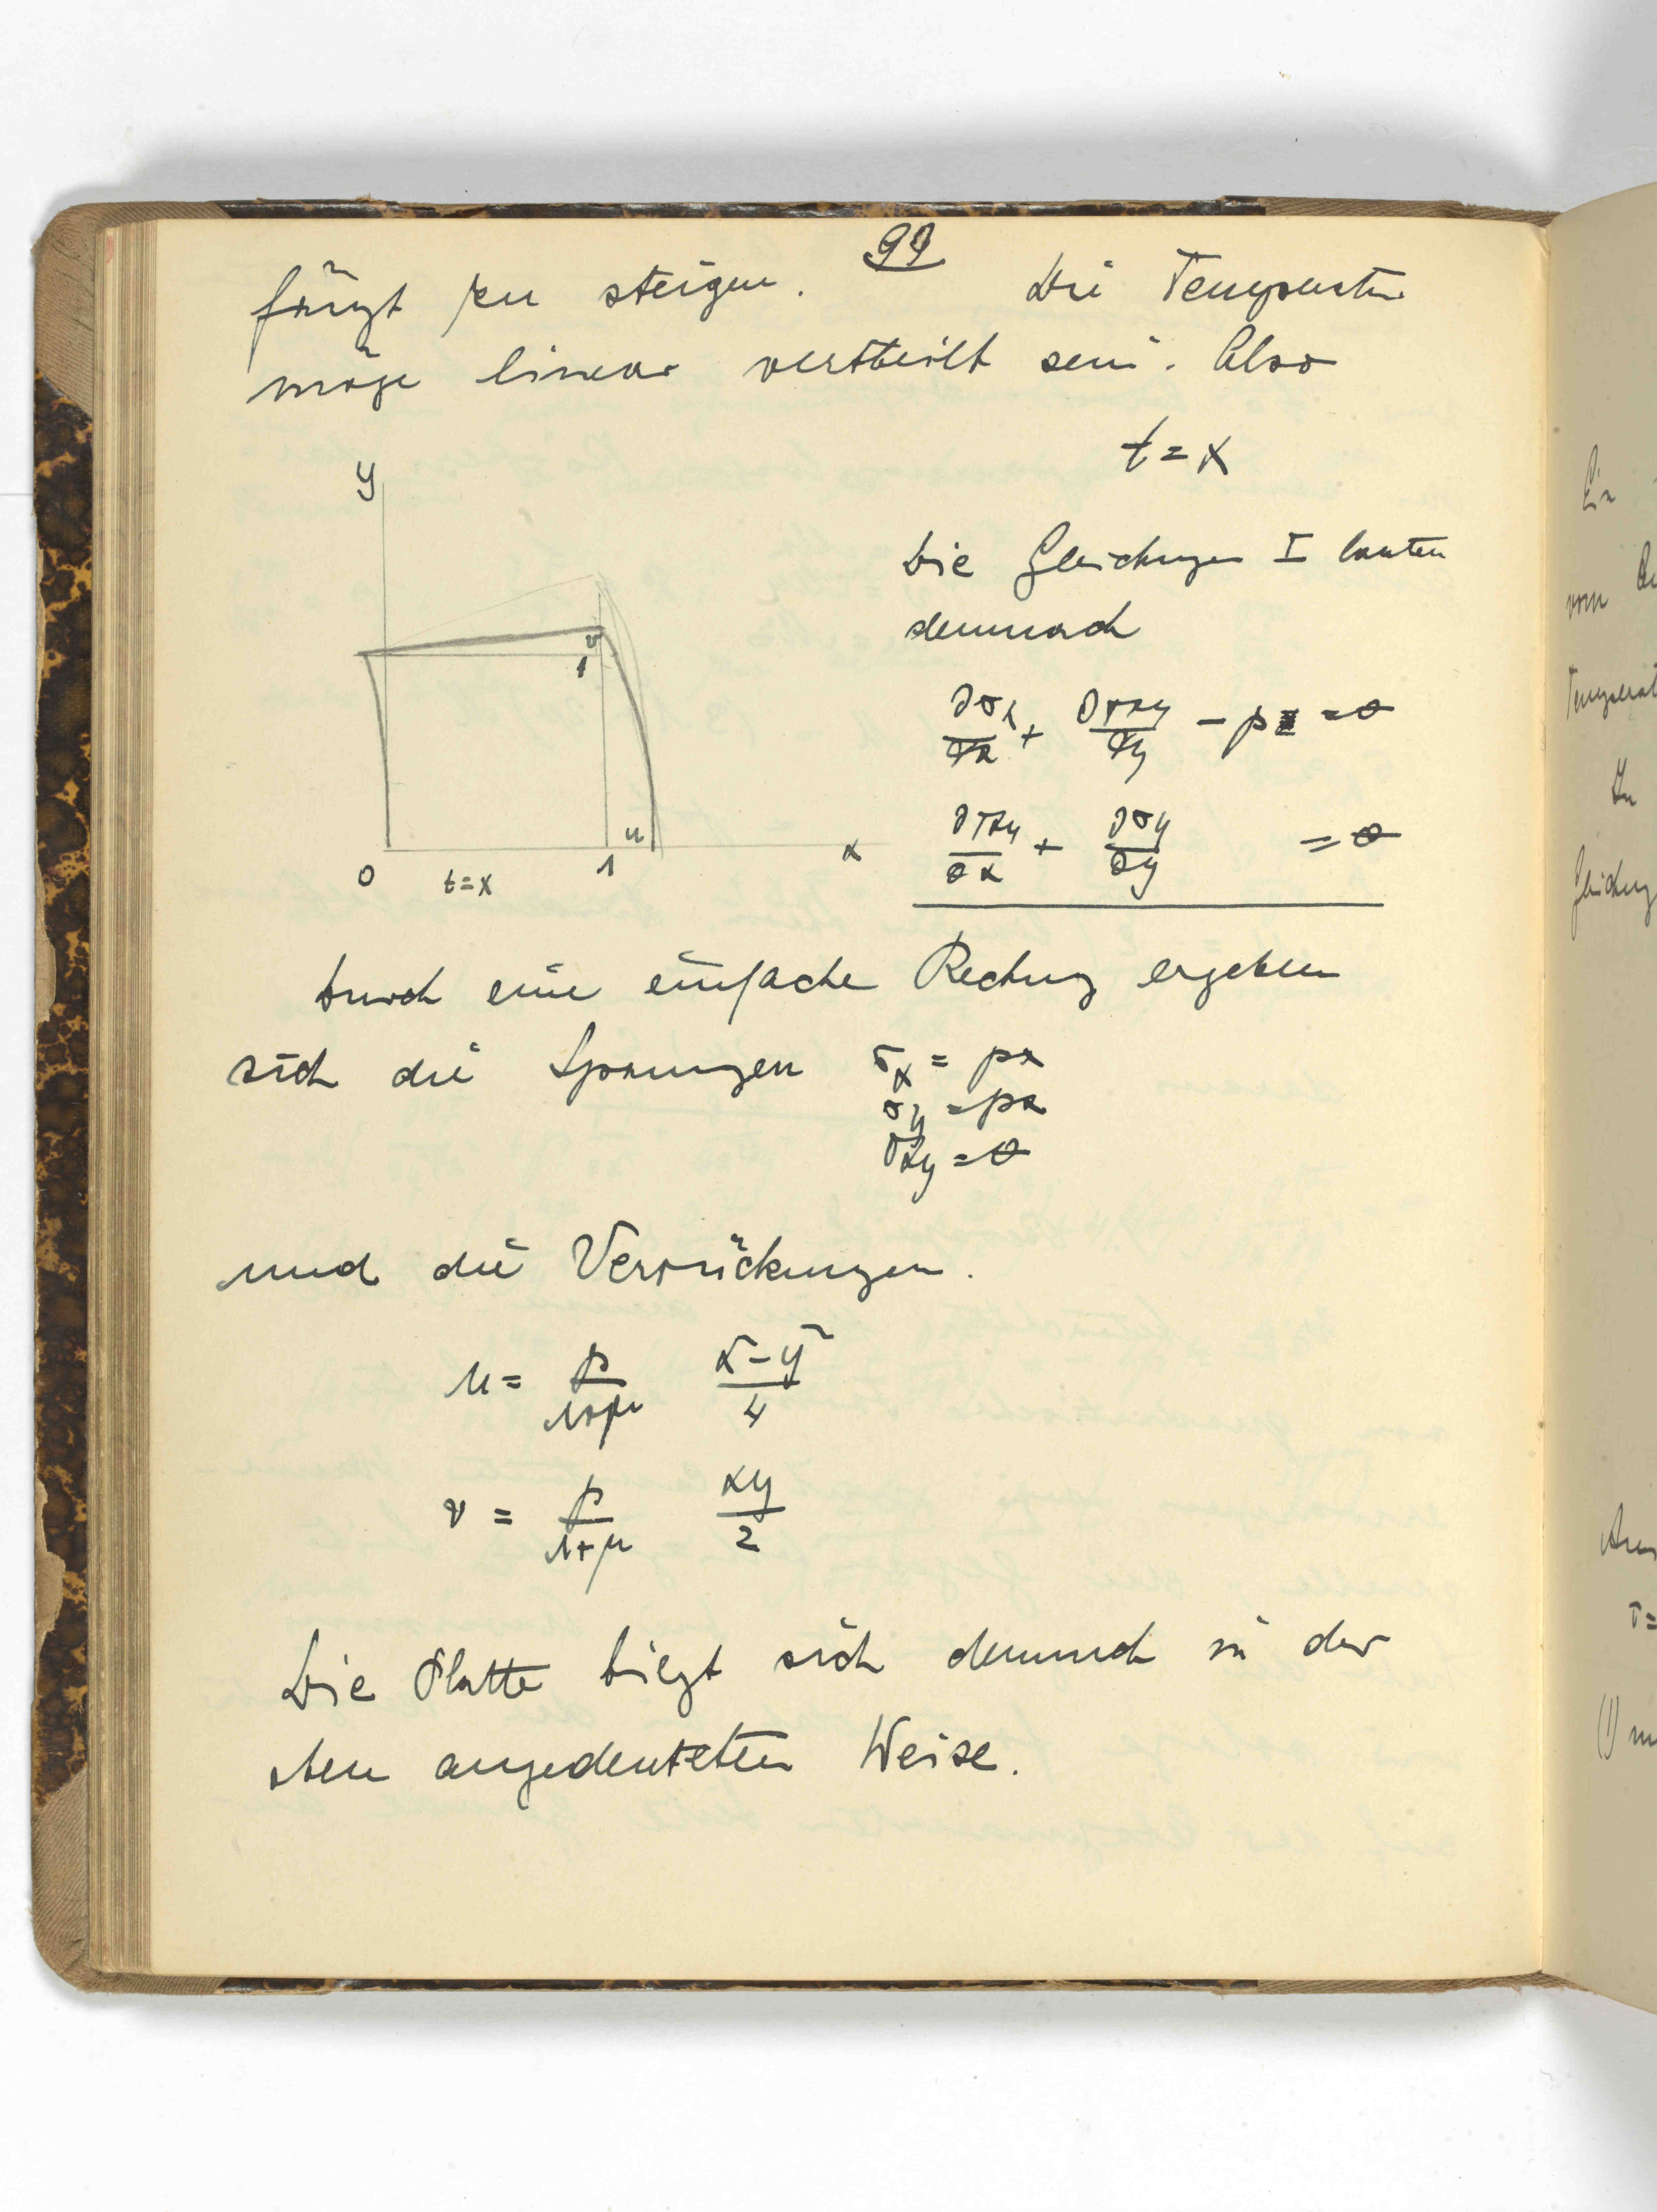 99
fängt zu steigen. Die Temperatur
möge linear verteilt sein. Also
t = x
y
Die Gleichungen I lauten
demnach
v
1
∂σx/∂x + ∂τxy/∂y − p = 0
u
∂τxy/∂x + ∂σy/∂y = 0
0 t=x 1 x
Durch eine einfache Rechnung ergeben
sich die Spannungen σx = px
σy = px
τxy = 0
und die Verrückungen.
u = p/(1+μ) (x²−y²)/4
v = p/(1+μ) xy/2
Die Platte biegt sich demnach in der
oben angedeuteten Weise.
Ein
vom
Temperat
In
Gleichung
τ=
(1) m